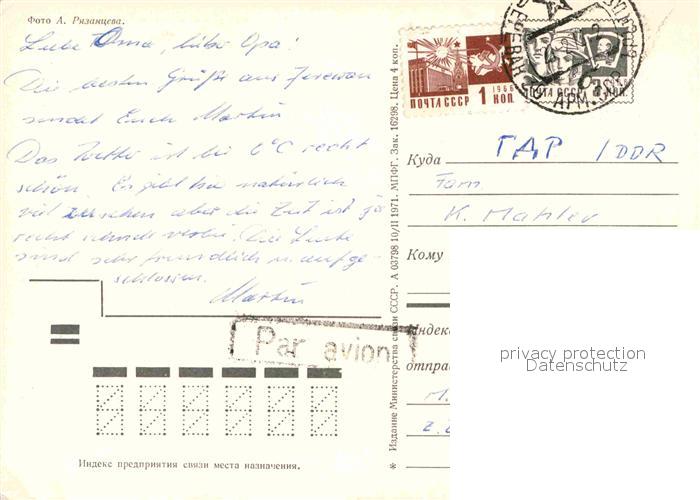 Фото А. Рязанцева.
Liebe Oma, lieber Opa!
Die besten Grüße aus Jerewan
sendet Euch Martin
Das Wetter ist bei 6°C recht
schön. Es gibt hie natürlich
viel zu sehen aber die Zeit ist
recht schnell vorbei. Die Leute
sind sehr freundlich u. aufge-
schlossen.
Martin
Par avion
Индекс предприятия связи места назначения.
* Издание Министерства связи СССР. А 03798 10/II 1971. МПФГ. Зак. 16298. Цена 4 коп.
1966
ПОЧТА СССР 1 КОП.
ПОЧТА СССР
АРМ. ССР
Куда ГДР / DDR
Fam.
K. Mahler
Кому
Индекс
отправ
M.
privacy protection
Datenschutz